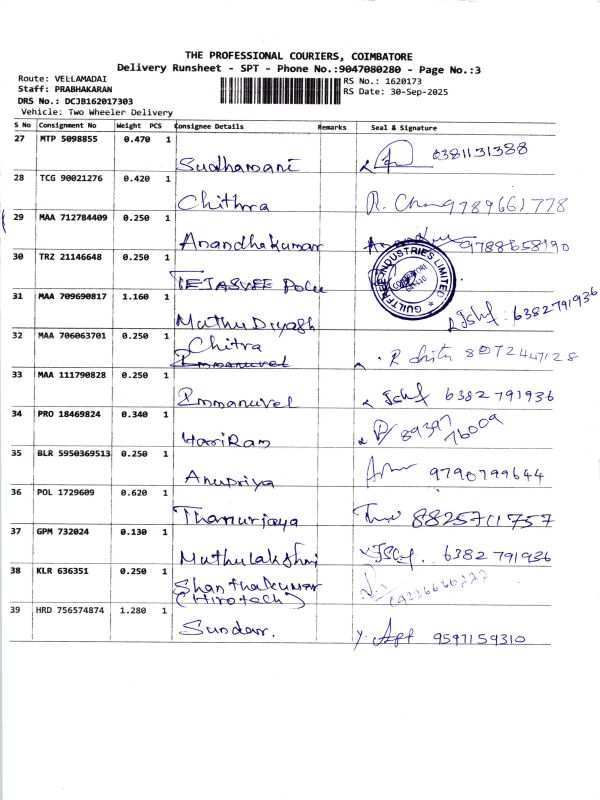 THE PROFESSIONAL COURIERS, COIMBATORE
Delivery Runsheet - SPT - Phone No.:9047080280 - Page No.:3
Route: VELLAMADAI
RS No.: 1620173
Staff: PRABHAKARAN
RS Date: 30-Sep-2025
DRS No.: DCJB162017303
Vehicle: Two Wheeler Delivery
S No Consignment No Weight PCS Consignee Details Remarks Seal & Signature
27 MTP 5098855 0.470 1 Sudhamani 6381131388
28 TCG 90021276 0.420 1 Chithra R. 9789661778
29 MAA 712784409 0.250 1 Anandhakumar 9788658190
30 TRZ 21146648 0.250 1 TEJASVEE
GUILTFREE INDUSTRIES LIMITED
31 MAA 709690817 1.160 1 Muthu Divyash 6382791936
32 MAA 706063701 0.250 1 Chitra R 8072447128
Immanuvel
33 MAA 111790828 0.250 1 Immanuvel 6382 791936
34 PRO 18469824 0.340 1 HariRam 89397 76009
35 BLR 5950369513 0.250 1 Anupriya 9790799644
36 POL 1729609 0.620 1 Thanurjaya 8825711757
37 GPM 732024 0.130 1 Muthulakshmi 6382 791936
38 KLR 636351 0.250 1 Shanthakumar
(Hirotech)
39 HRD 756574874 1.280 1 Sundar. 9597159310